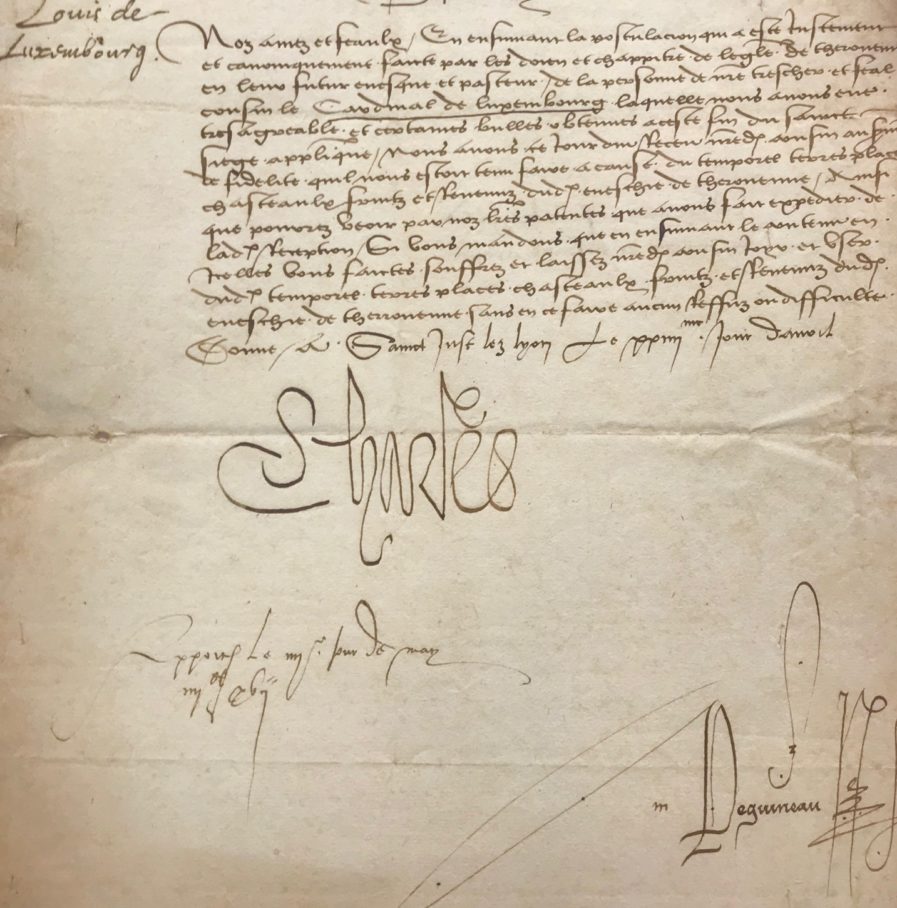 Louis de
Luxembourg.
Noz amez et feaulx / En ensuivant la postulacion qui a este Justement
et canoniquement faicte par les doien et chappitre de legle. De therouenne
en leur futur evesque et pasteur / de la personne de nre trescher et feal
cousin le Cardinal de luxembourg laquelle nous avons eue
tresagreable. et certaines bulles obtenues a ceste fin du sainct
siege applique / Nous avons ce Jourduy Receu nred cousin au
de fidelite quil nous estoit tenu faire a cause du temporel terres places
chasteaulx fruitz et Revenuz dud evesche de therouenne / Ainsi
que pourrez veoir par noz lres patentes que avons fait expedier de
lad Reception / Si vous mandons que en ensuivant le contenu en
Icelles vous faictes souffrez et laissez nred cousin Joyr et user
dud temporel terres places chasteaulx fruitz et Revenuz dud
evesche de therrouenne sans en ce faire aucun Reffuz ou difficulte
Donne / A Sainct Just lez lyon Le xxiiii me Jour davril
Charles
Le iiii e jour de may
iiii xx xvii
Deguineau